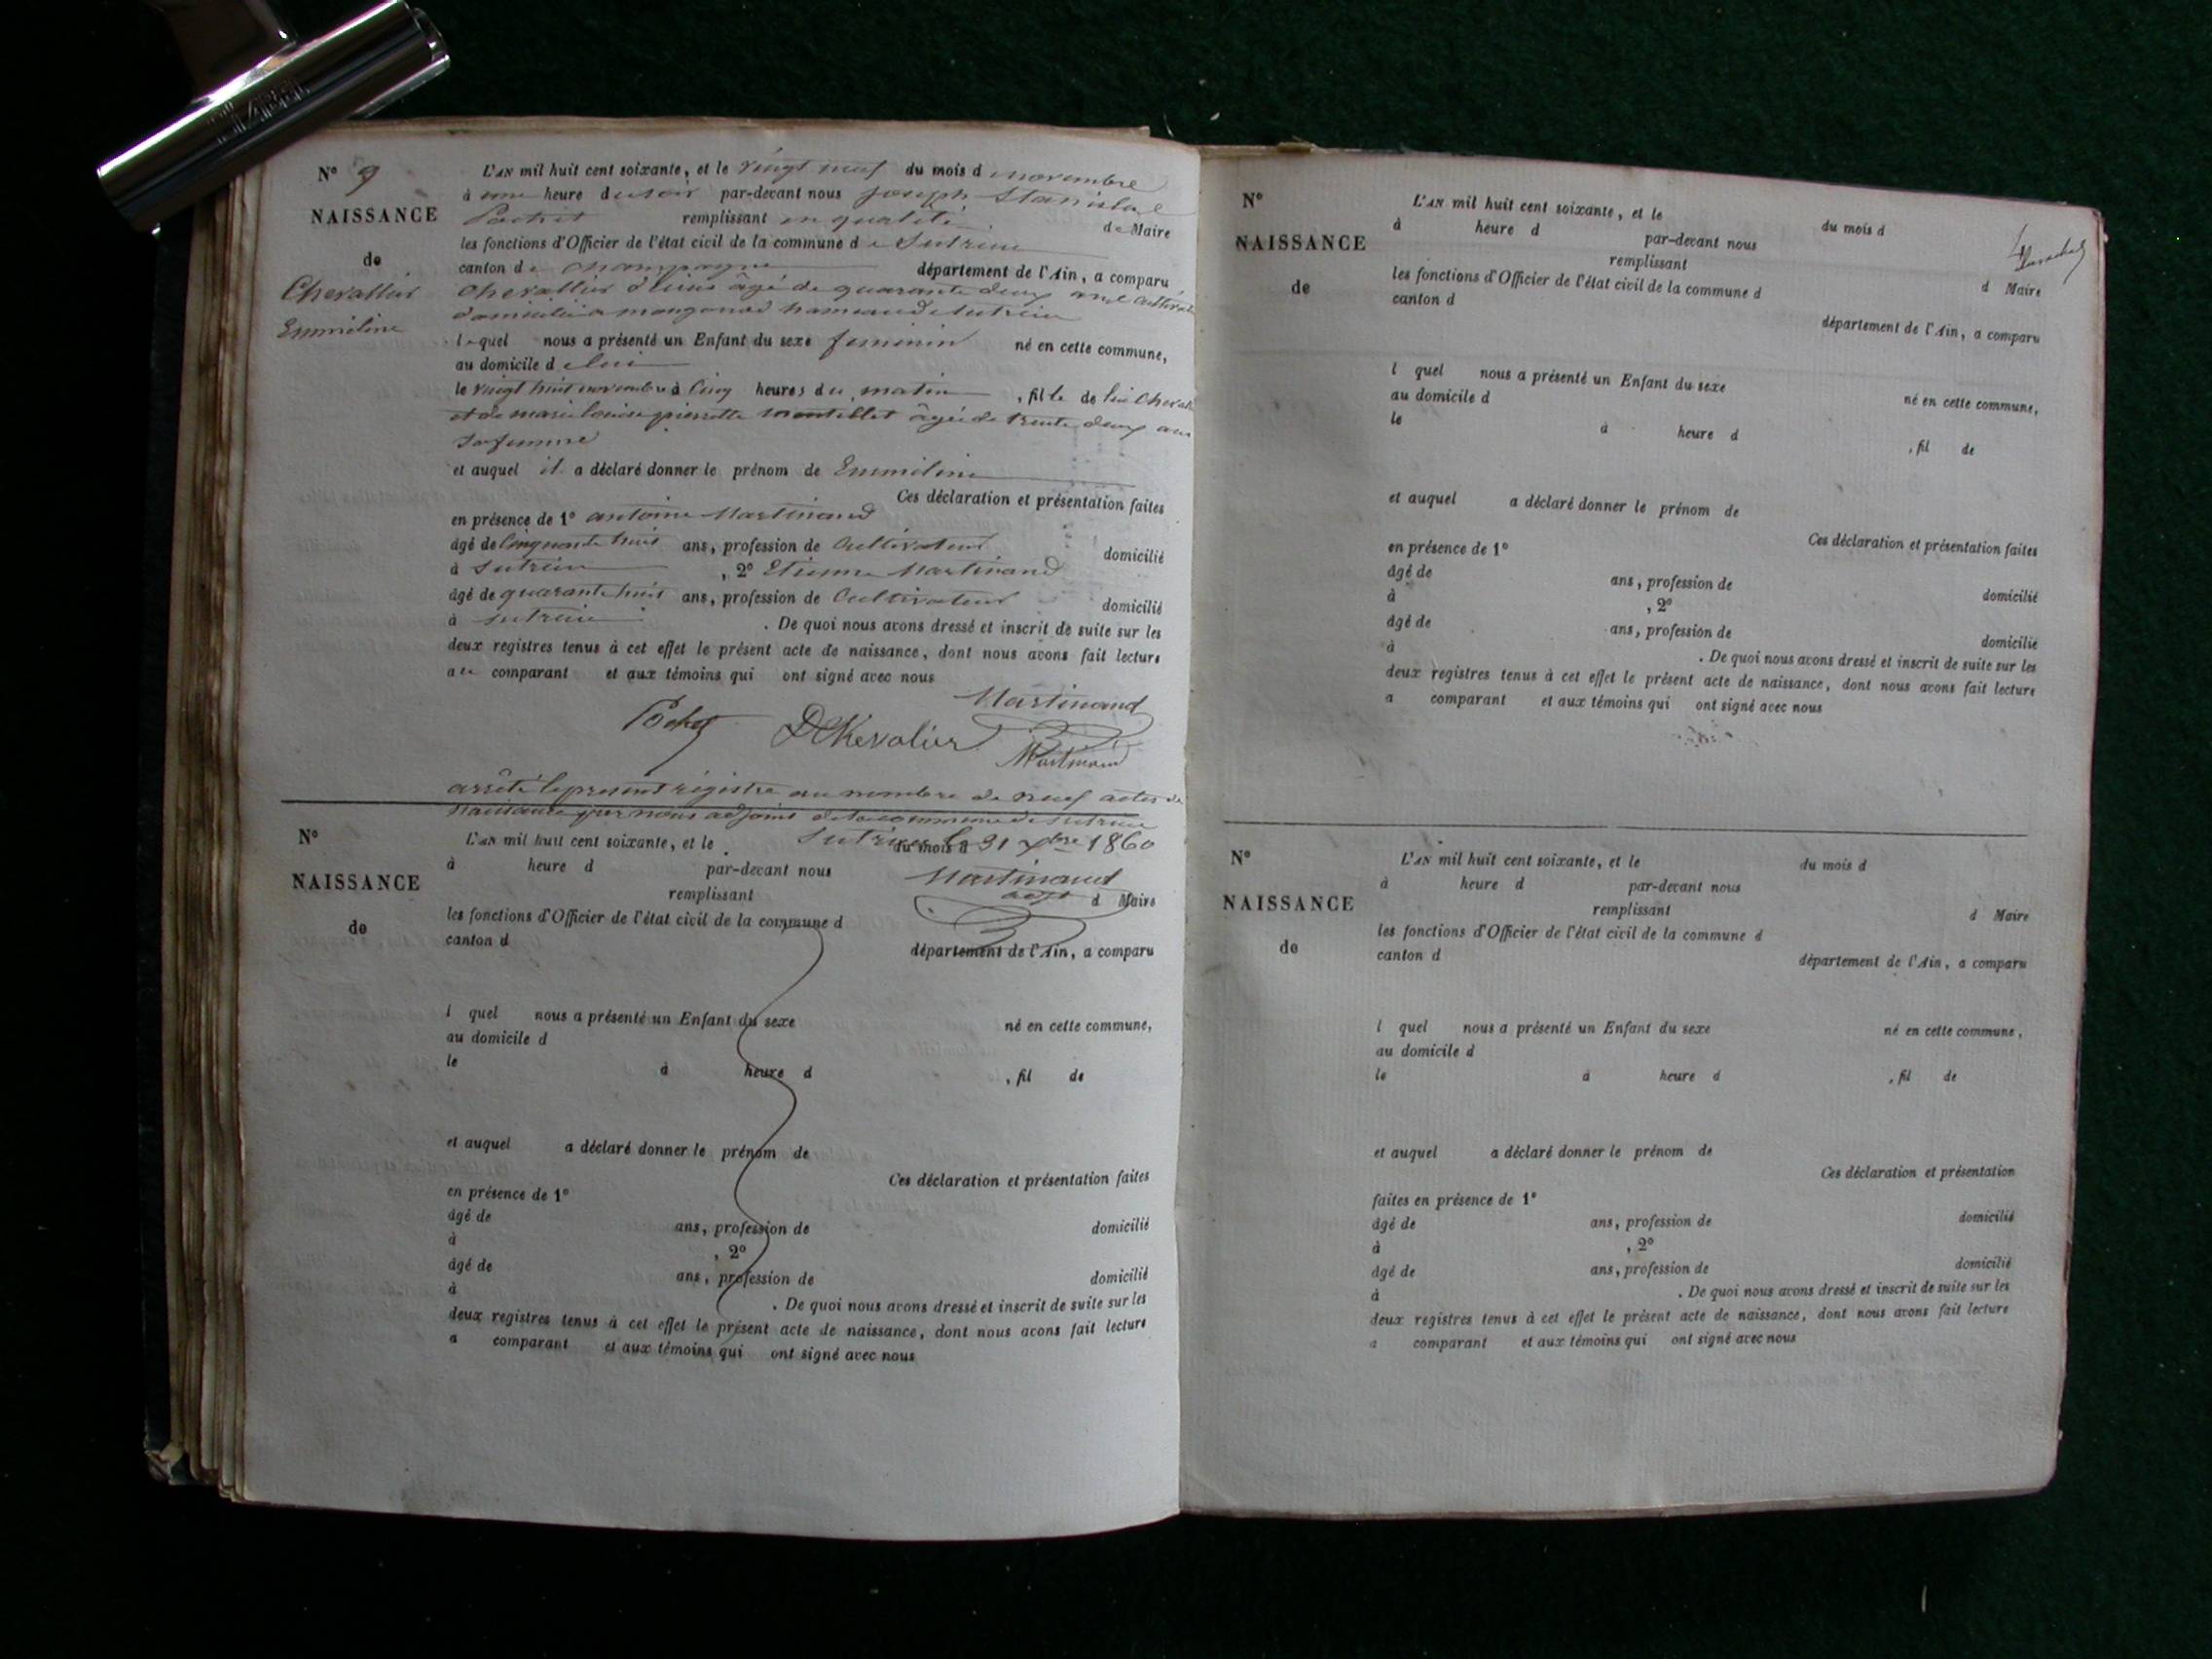 N° 9
NAISSANCE
de
Chevallier
Emmeline
L'AN mil huit cent soixante, et le vingt neuf du mois d novembre
à une heure du soir par-devant nous joseph Stanislas
Pochet remplissant en qualité de Maire
les fonctions d'Officier de l'état civil de la commune de Sutrieu
canton de champagne département de l'Ain, a comparu
Chevallier âgé de quarante deux ans Cultivat
domicilié a mongonod hameau de Sutrieu
lequel nous a présenté un Enfant du sexe feminin né en cette commune,
au domicile de lui
le vingt huit novembre à Cinq heures du matin , fille de lui Cheval
et de marie louise pierrette montillet âgée de trente deux ans
sa femme
et auquel il a déclaré donner le prénom de Emmeline
Ces déclaration et présentation faites
en présence de 1° antoine Martinand
âgé de Cinquante huit ans, profession de Cultivateur domicilié
à Sutrieu , 2° Etienne Martinand
âgé de quarante huit ans, profession de Cultivateur domicilié
à Sutrieu . De quoi nous avons dressé et inscrit de suite sur les
deux registres tenus à cet effet le présent acte de naissance, dont nous avons fait lecture
au comparant et aux témoins qui ont signé avec nous
Martinand
Pochet Chevalier
Martinand
arrêté le present régistre au nombre de neuf actes de
naissance par nous adjoint de la commune de Sutrieu
Sutrieu le 31 Xbre 1860
Martinand
adjt
N°
NAISSANCE
de
L'AN mil huit cent soixante, et le du mois d
à heure d par-devant nous
remplissant d Maire
les fonctions d'Officier de l'état civil de la commune d
canton d département de l'Ain, a comparu
l quel nous a présenté un Enfant du sexe né en cette commune,
au domicile d
le à heure d , fil de
et auquel a déclaré donner le prénom de
Ces déclaration et présentation faites
en présence de 1°
âgé de ans, profession de domicilié
à , 2°
âgé de ans, profession de domicilié
à . De quoi nous avons dressé et inscrit de suite sur les
deux registres tenus à cet effet le présent acte de naissance, dont nous avons fait lecture
a comparant et aux témoins qui ont signé avec nous
N°
NAISSANCE
de
L'AN mil huit cent soixante, et le du mois d
à heure d par-devant nous
remplissant d Maire
les fonctions d'Officier de l'état civil de la commune d
canton d département de l'Ain, a comparu
l quel nous a présenté un Enfant du sexe né en cette commune,
au domicile d
le à heure d , fil de
et auquel a déclaré donner le prénom de
Ces déclaration et présentation faites
en présence de 1°
âgé de ans, profession de domicilié
à , 2°
âgé de ans, profession de domicilié
à . De quoi nous avons dressé et inscrit de suite sur les
deux registres tenus à cet effet le présent acte de naissance, dont nous avons fait lecture
a comparant et aux témoins qui ont signé avec nous
N°
NAISSANCE
de
L'AN mil huit cent soixante, et le du mois d
à heure d par-devant nous
remplissant d Maire
les fonctions d'Officier de l'état civil de la commune d
canton d département de l'Ain, a comparu
l quel nous a présenté un Enfant du sexe né en cette commune,
au domicile d
le à heure d , fil de
et auquel a déclaré donner le prénom de
Ces déclaration et présentation
faites en présence de 1°
âgé de ans, profession de domicilié
à , 2°
âgé de ans, profession de domicilié
à . De quoi nous avons dressé et inscrit de suite sur les
deux registres tenus à cet effet le présent acte de naissance, dont nous avons fait lecture
a comparant et aux témoins qui ont signé avec nous